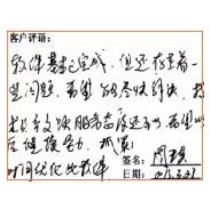 客户评语:
软件基本已完成,但还存在着一
些问题,希望能尽快解决,技
术人员交谈服务态度还可以,希望以
后继续努力,抓紧
时间优化此软件
签名:
日期: